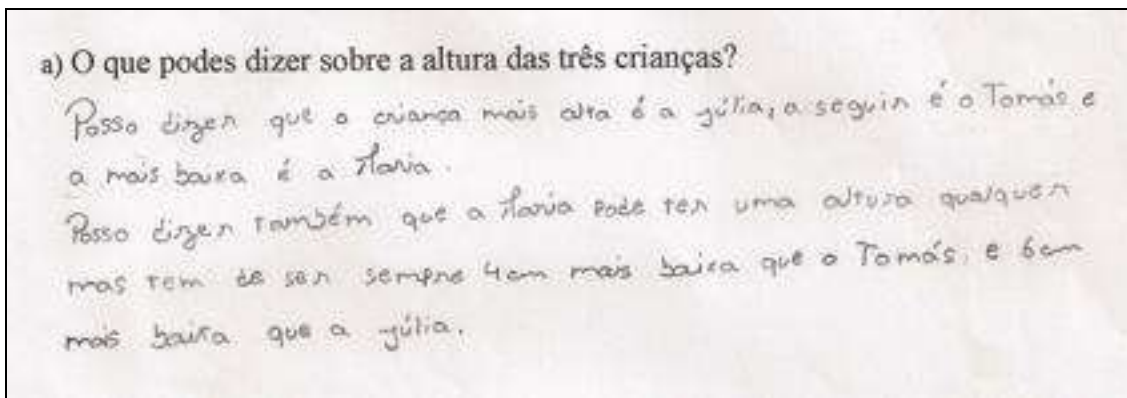 a) O que podes dizer sobre a altura das três crianças?
Posso dizer que a criança mais alta é a Júlia, a seguir é o Tomás e
a mais baixa é a Maria.
Posso dizer também que a Maria pode ter uma altura qualquer
mas tem de ser sempre 4cm mais baixa que o Tomás, e 6cm
mais baixa que a Júlia.